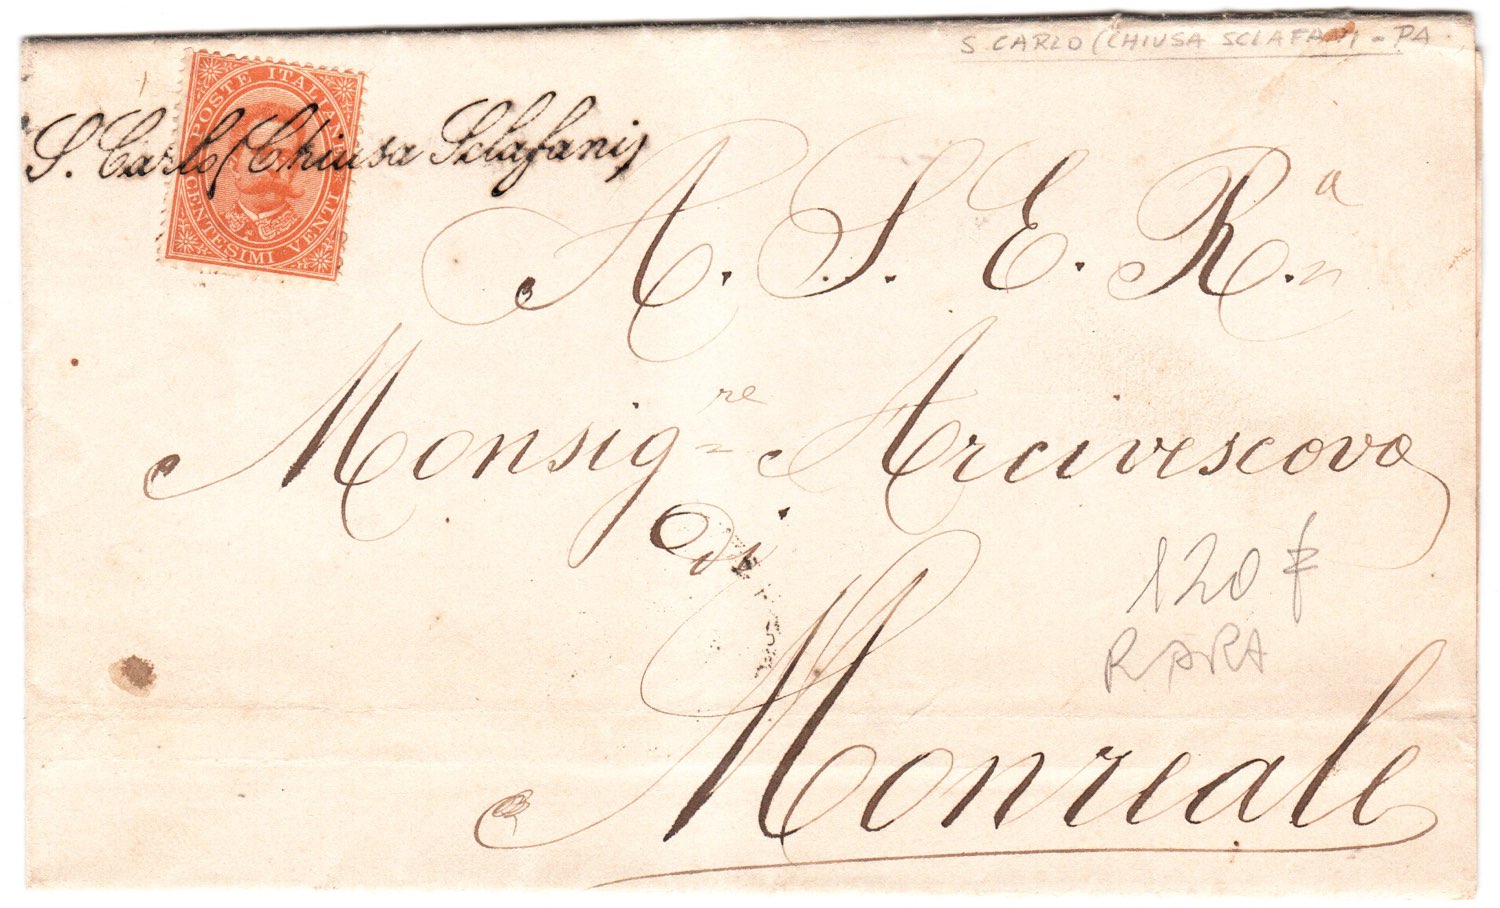 S. CARLO (CHIUSA SCLAFANI - PA
POSTE ITALIANE
CENTESIMI VENTI
S. Carlo (Chiusa Sclafani)
A. S. E. R.a
Monsig.re Arcivescovo
di
Monreale
120 £
RARA